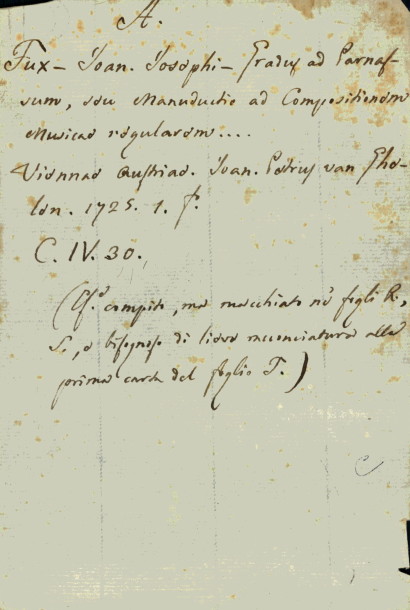 A.
Fux - Ioan. Iosephi - Gradus ad Parnas-
sum, seu Manuductio ad Compositionem
Musicae regularem....
Viennae Austriae. Ioan. Petrus van Ghe-
len. 1725. 1. f.
C. IV. 30.
(Es.º compito, ma macchiato ne' fogli R,
S., e bisognoso di lieve racconciatura alla
prima carta del foglio T.)